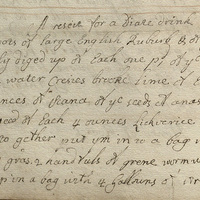 A receit for a Diate drink
of large English Rubarb &
diged up of each one po: of ye
water Cresies brook lime of
ounces of seana of ye seeds of anas
of each 4 ounces Lickerice
to gether put ym in to a bag
2 handfuls of grene worm w
up on a bag with 4 Gallons of